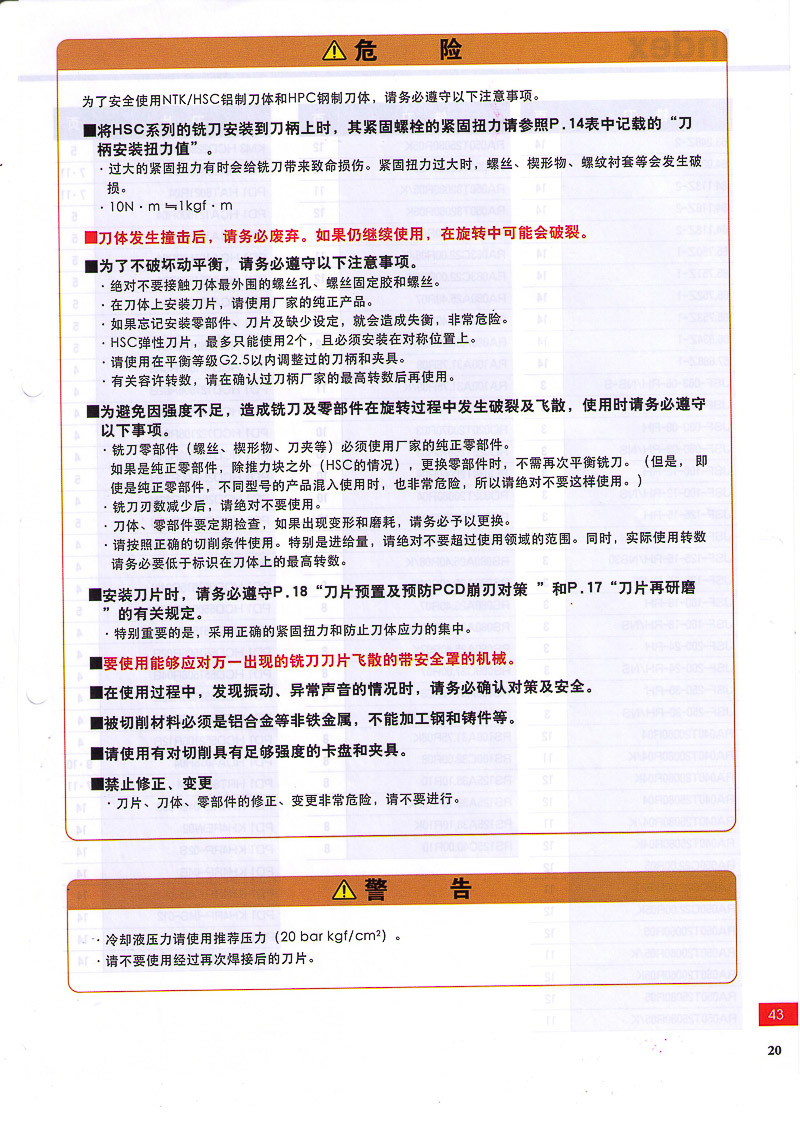 ⚠危 险
为了安全使用NTK/HSC铝制刀体和HPC钢制刀体，请务必遵守以下注意事项。
■将HSC系列的铣刀安装到刀柄上时，其紧固螺栓的紧固扭力请参照P.14表中记载的“刀
柄安装扭力值”。
·过大的紧固扭力有时会给铣刀带来致命损伤。紧固扭力过大时，螺丝、楔形物、螺纹衬套等会发生破
损。
·10N·m≒1kgf·m
■刀体发生撞击后，请务必废弃。如果仍继续使用，在旋转中可能会破裂。
■为了不破坏动平衡，请务必遵守以下注意事项。
·绝对不要接触刀体最外围的螺丝孔、螺丝固定胶和螺丝。
·在刀体上安装刀片，请使用厂家的纯正产品。
·如果忘记安装零部件、刀片及缺少设定，就会造成失衡，非常危险。
·HSC弹性刀片，最多只能使用2个，且必须安装在对称位置上。
·请使用在平衡等级G2.5以内调整过的刀柄和夹具。
·有关容许转数，请在确认过刀柄厂家的最高转数后再使用。
■为避免因强度不足，造成铣刀及零部件在旋转过程中发生破裂及飞散，使用时请务必遵守
以下事项。
·铣刀零部件（螺丝、楔形物、刀夹等）必须使用厂家的纯正零部件。
如果是纯正零部件，除推力块之外（HSC的情况），更换零部件时，不需再次平衡铣刀。（但是，即
使是纯正零部件，不同型号的产品混入使用时，也非常危险，所以请绝对不要这样使用。）
·铣刀刃数减少后，请绝对不要使用。
·刀体、零部件要定期检查，如果出现变形和磨耗，请务必予以更换。
·请按照正确的切削条件使用。特别是进给量，请绝对不要超过使用领域的范围。同时，实际使用转数
请务必要低于标识在刀体上的最高转数。
■安装刀片时，请务必遵守P.18“刀片预置及预防PCD崩刃对策 ”和P.17“刀片再研磨
”的有关规定。
·特别重要的是，采用正确的紧固扭力和防止刀体应力的集中。
■要使用能够应对万一出现的铣刀刀片飞散的带安全罩的机械。
■在使用过程中，发现振动、异常声音的情况时，请务必确认对策及安全。
■被切削材料必须是铝合金等非铁金属，不能加工钢和铸件等。
■请使用有对切削具有足够强度的卡盘和夹具。
■禁止修正、变更
·刀片、刀体、零部件的修正、变更非常危险，请不要进行。
⚠警 告
·冷却液压力请使用推荐压力（20 bar kgf/cm²）。
·请不要使用经过再次焊接后的刀片。
43
20